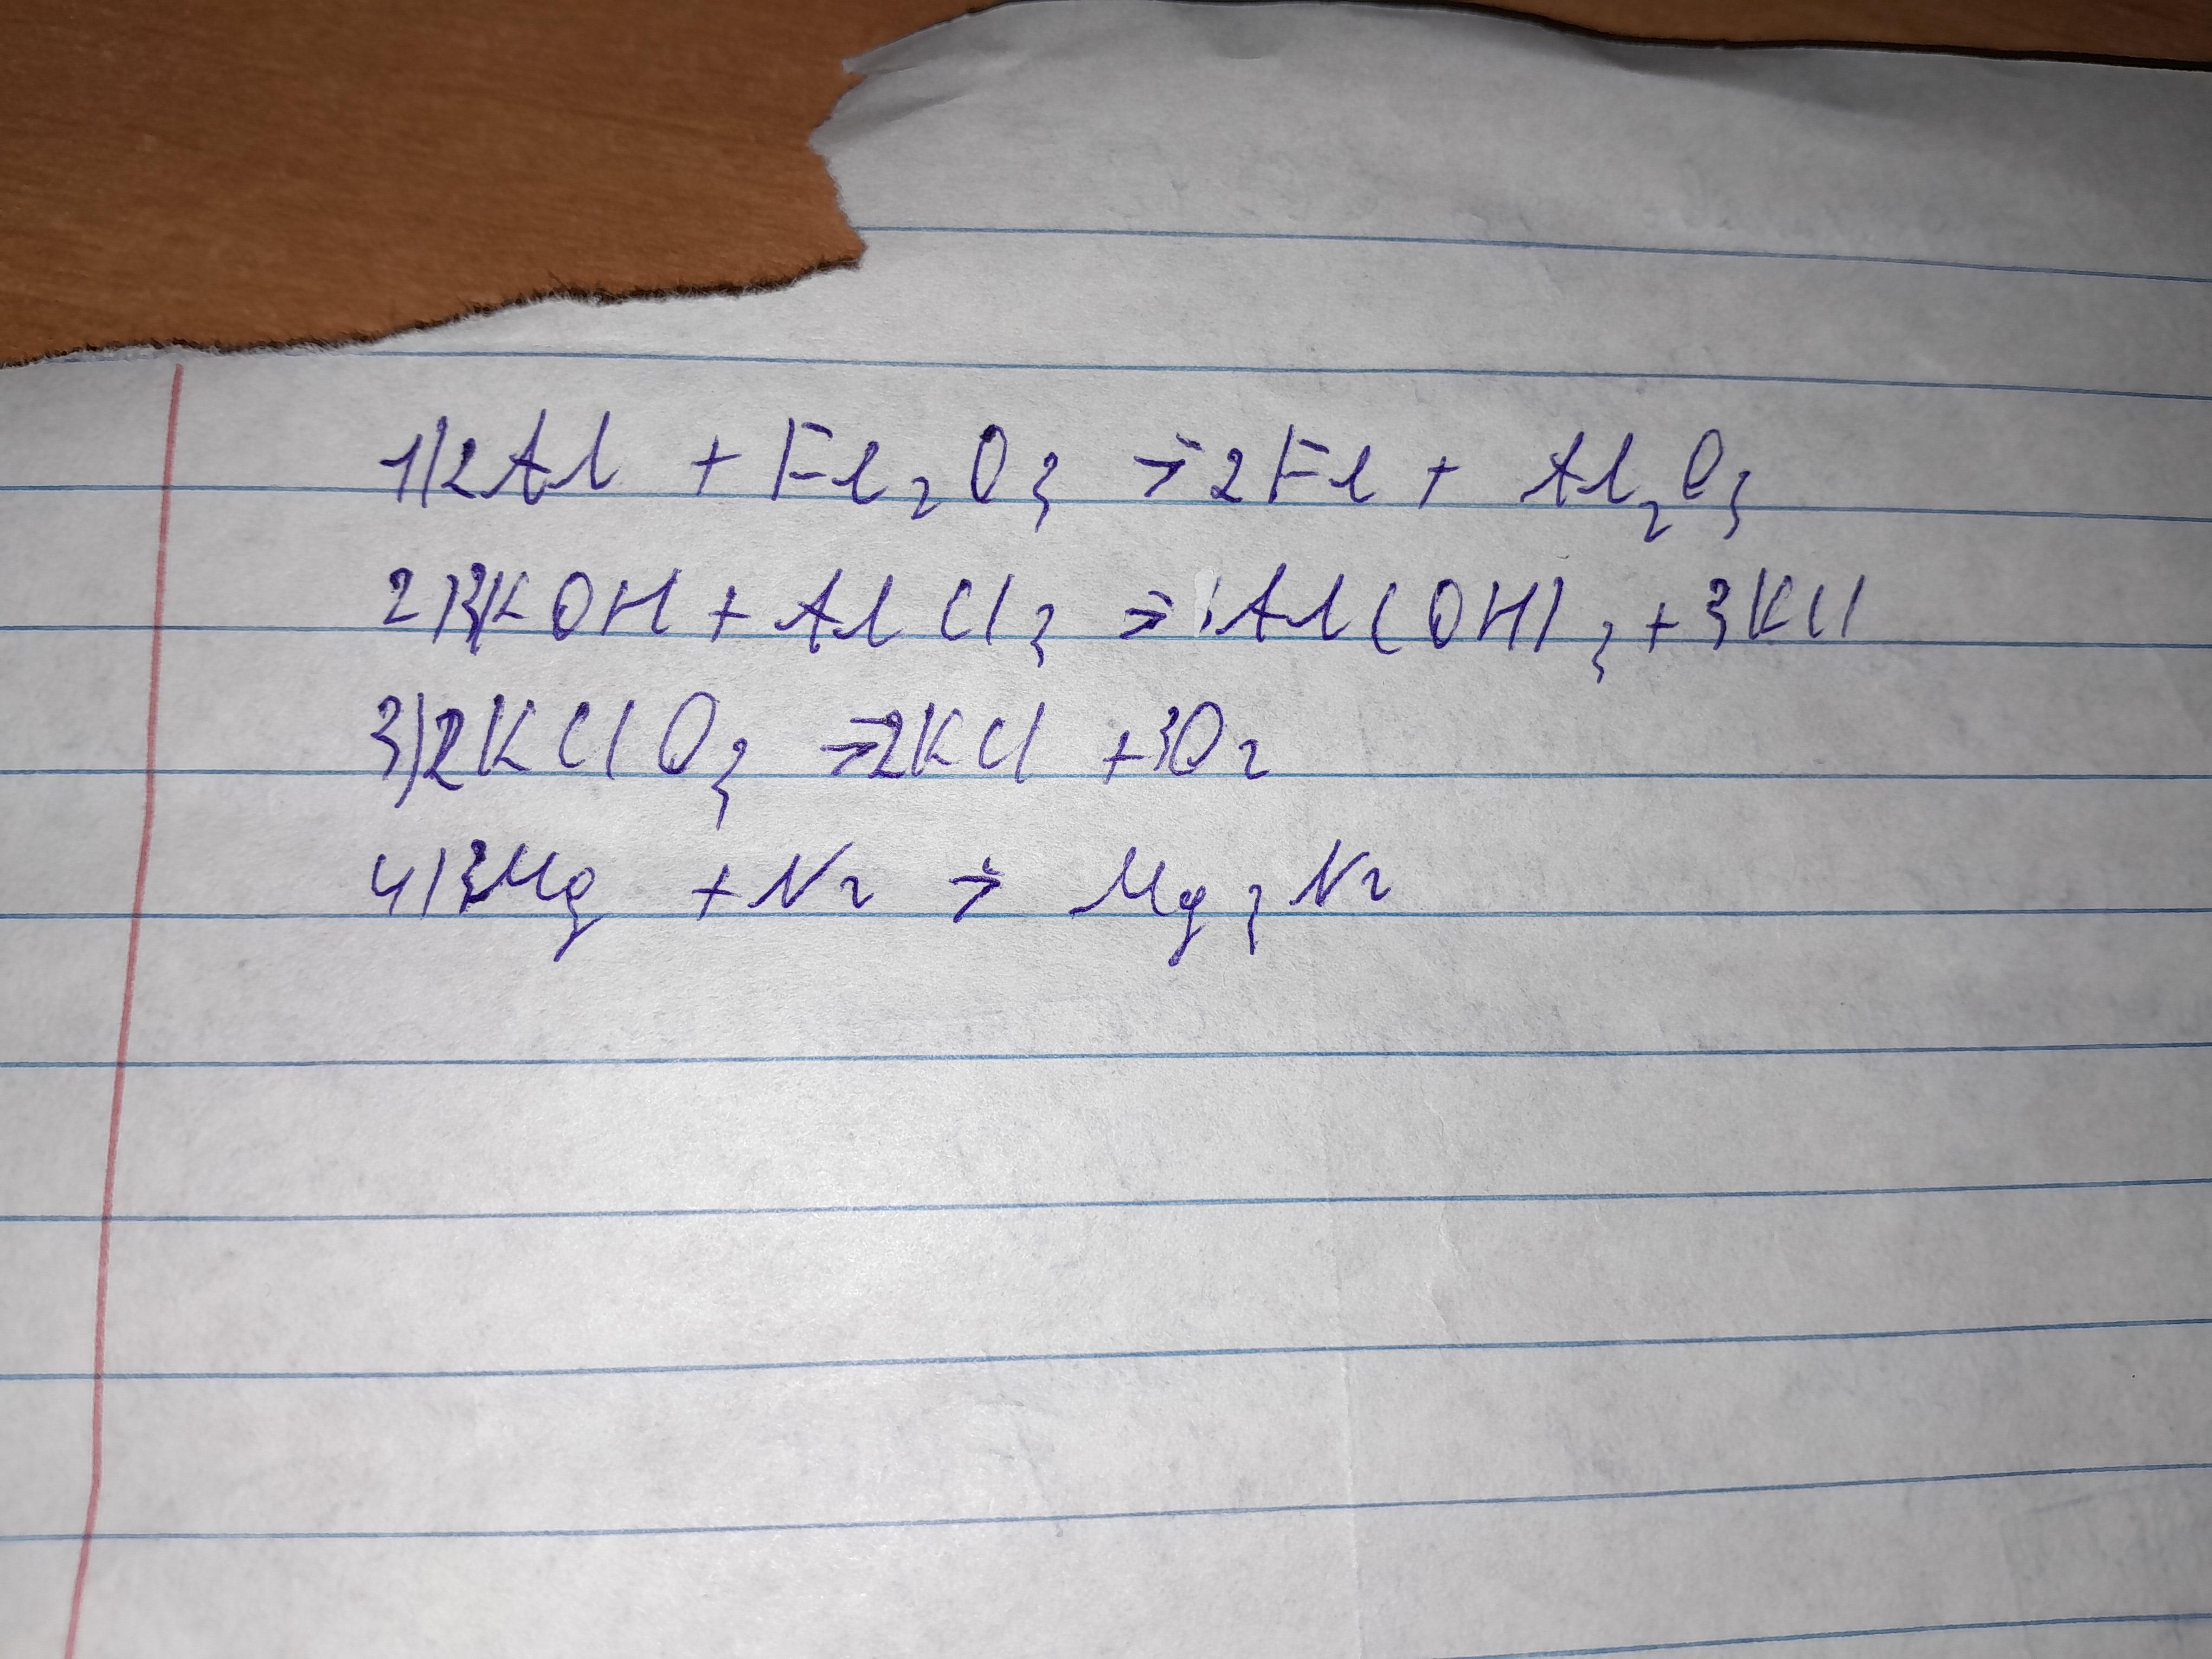 1)2Al + Fe₂O₃ → 2Fe + Al₂O₃
2)3KOH + AlCl₃ → Al(OH)₃ + 3KCl
3)2KClO₃ → 2KCl + 3O₂
4)3Mg + N₂ → Mg₃N₂